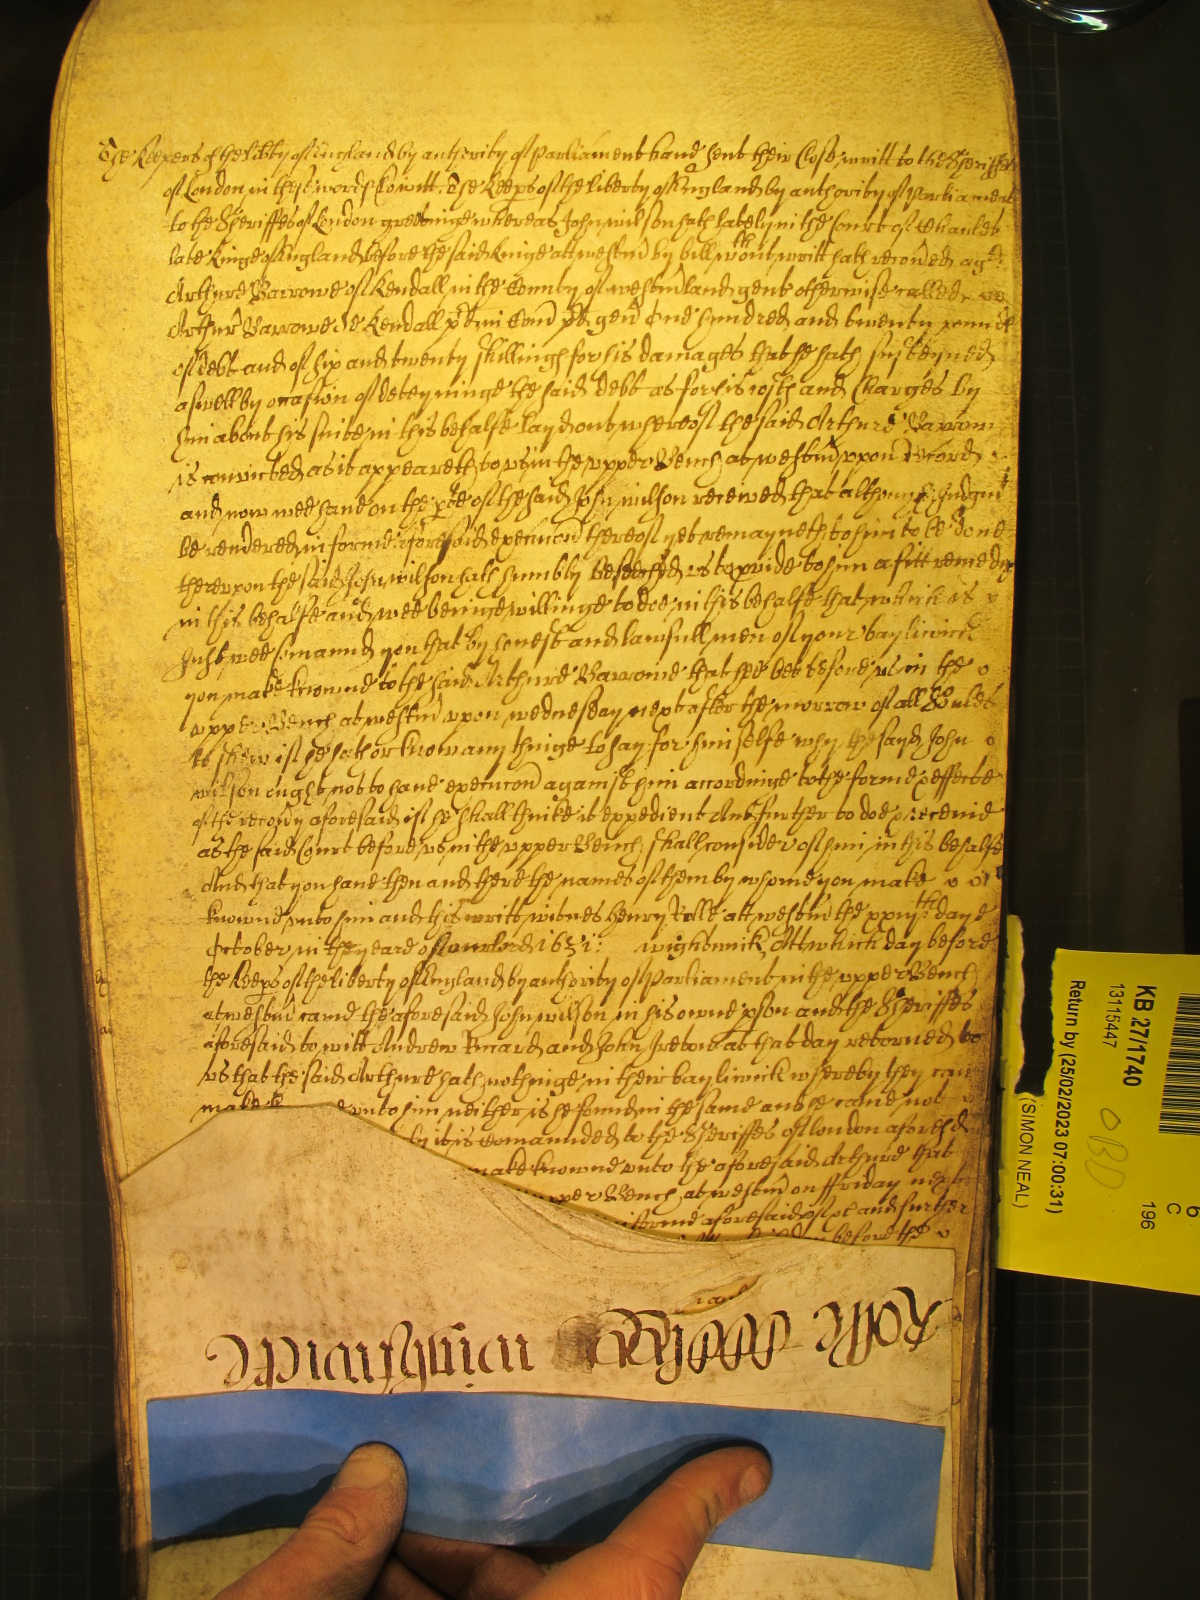 The Keepers of the libty of England by authority of Parliament have sent their Close writt to the Sheriffes
of London in these words to witt. The Keeps of the liberty of England by authority of Parliament
to the Sheriffes of London greetinge whereas John wilson hath lately in the Court of Charles
late Kinge of England before the said Kinge att westm by bill wthout writt hath recoved agt.
Arthure Barrowe of Kendall in the County of westmland gent otherwise called
Arthur Barrowe de Kendall pd in Com pd gen One hundred and twenty
of debt and of six and twenty shillings for his damages that he hath susteyned
aswell by occasion of deteyninge the said debt as for his costs and Charges by
him about his suite in this behalfe layd out whereof the said Arthure Barrow
is convicted as it appeareth to us in the upper Bench at westm uppon record
and now wee have on the pte of the said John wilson received that although Judgmt
be rendered in forme aforesaid execucon thereof yet remayneth to him to be done
thereupon the said John wilson hath humbly beseeched us to pvide to him a fitt remedy
in this behalfe and wee beinge willinge to doe in this behalfe that which is
Just wee comannd you that by honest and lawfull men of your bayliwick
you make knowne to the said Arthure Barrowe that hee bee before us in the
upper Bench at westm upon wednesday next after the morrow of all Soules
to shew if he hath or know any thinge to say for himselfe why the sayd John
wilson ought not to have execucon against him accordinge to the forme & effecte
of the recovy aforesaid if he shall thinke it expedient And further to doe & receive
as the said Court before us in the upper Bench shall consider of him in this behalfe
And that you have then and there the names of them by whome you make
knowne unto him and this writt witnes Henry Rolle att westm the xxiijth day of
October in the yeare of our lord 1651: wightwick Att which day before
the Keeps of the liberty of England by authority of Parliament in the upper Bench
at westm came the aforesaid John wilson in his owne pson and the Sheriffes
aforesaid to witt Andrew Ricard and John Ireton at that day retorned to
us that the said Arthure hath nothinge in their bayliwick whereby they can
make unto him neither is he found in the same and he came not
by it is Comannded to the Sheriffes of London aforesd
make knowne unto the aforesaid Arthure that
upper Bench at westm on ffriday next
forme aforesaid of &c and further
before the
Rolle
KB 27/1740
1311547
Return by (25/02/2023 07:00:31)
(SIMON NEAL)
196
C
6